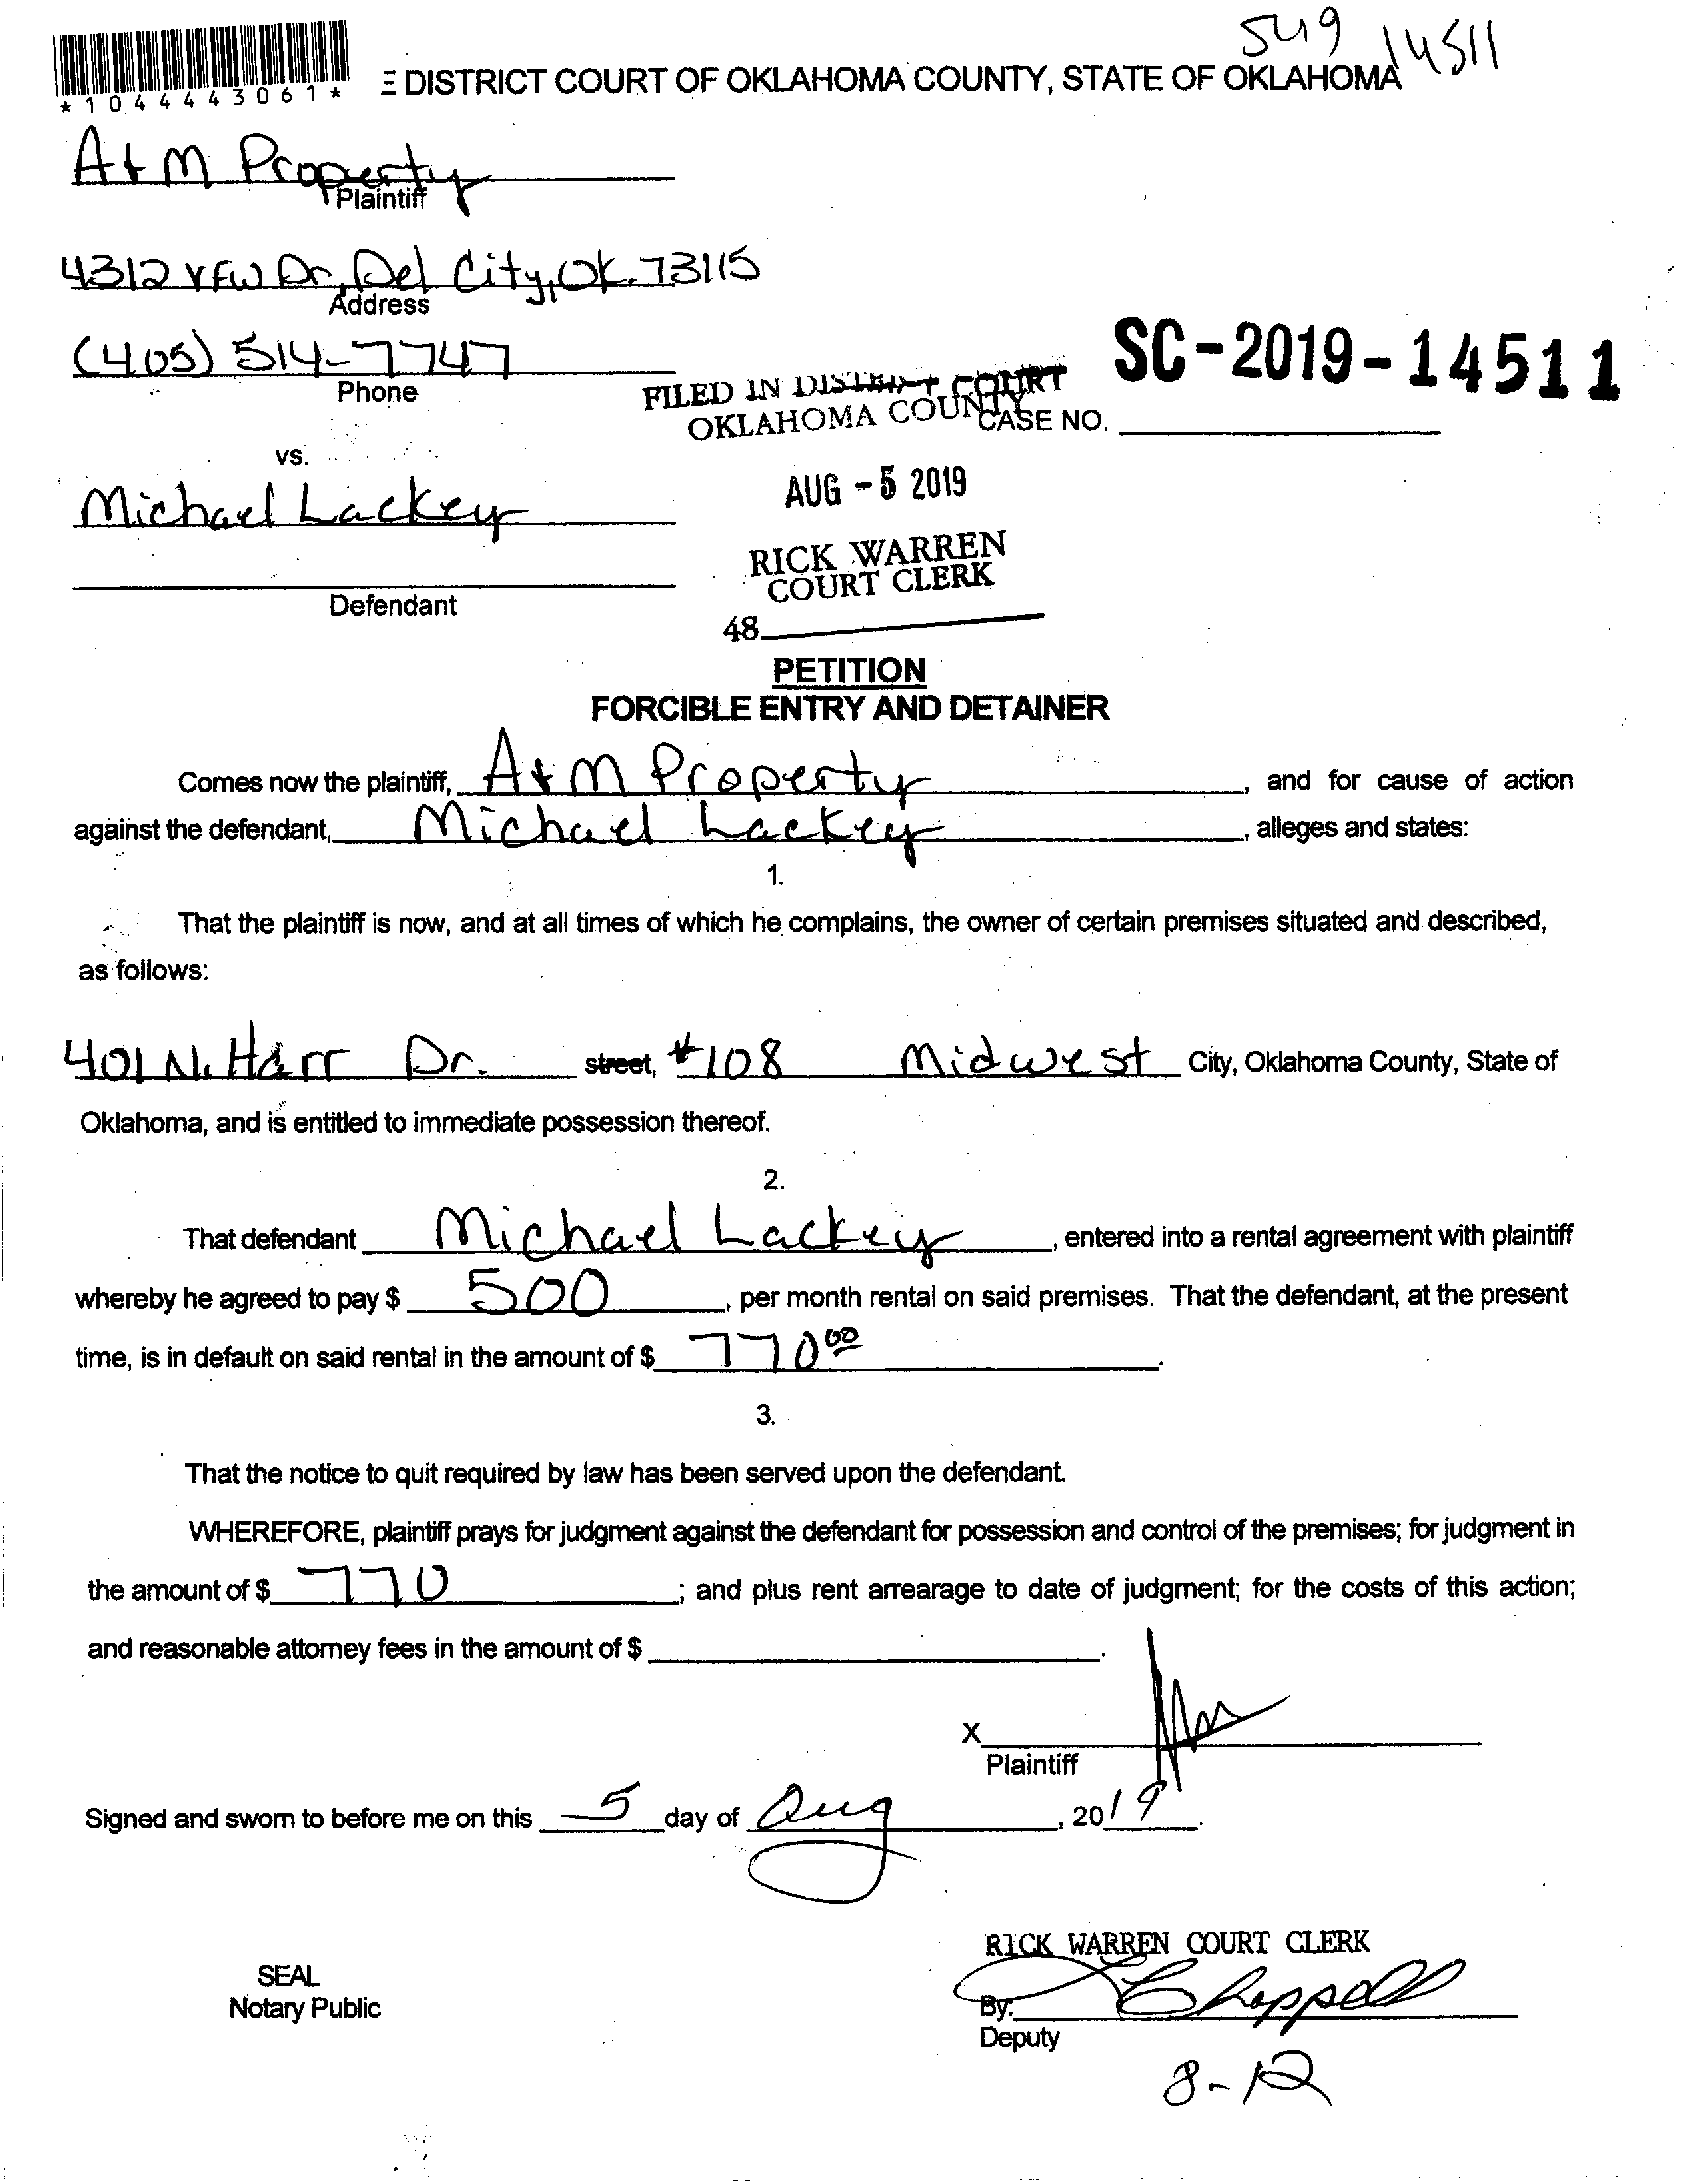 549 14511
*1044443061*
E DISTRICT COURT OF OKLAHOMA COUNTY, STATE OF OKLAHOMA
A+M Property
Plaintiff
4312 VFW Dr, Del City, Ok. 73115
Address
(405) 514-7747
Phone
SC-2019-14511
FILED IN DISTRICT COURT
OKLAHOMA COUNTY
CASE NO.
vs.
AUG -5 2019
Michael Lackey
RICK WARREN
COURT CLERK
Defendant
48
PETITION
FORCIBLE ENTRY AND DETAINER
Comes now the plaintiff, A+M Property, and for cause of action
against the defendant, Michael Lackey, alleges and states:
1.
That the plaintiff is now, and at all times of which he complains, the owner of certain premises situated and described,
as follows:
401 N. Harr Dr. street, #108 Midwest City, Oklahoma County, State of
Oklahoma, and is entitled to immediate possession thereof.
2.
That defendant Michael Lackey, entered into a rental agreement with plaintiff
whereby he agreed to pay $ 500, per month rental on said premises. That the defendant, at the present
time, is in default on said rental in the amount of $ 770 00.
3.
That the notice to quit required by law has been served upon the defendant.
WHEREFORE, plaintiff prays for judgment against the defendant for possession and control of the premises; for judgment in
the amount of $ 770; and plus rent arrearage to date of judgment; for the costs of this action;
and reasonable attorney fees in the amount of $.
X
Plaintiff
Signed and sworn to before me on this 5 day of Aug, 2019.
RICK WARREN COURT CLERK
SEAL
Notary Public
By: Chappell
Deputy
8-12